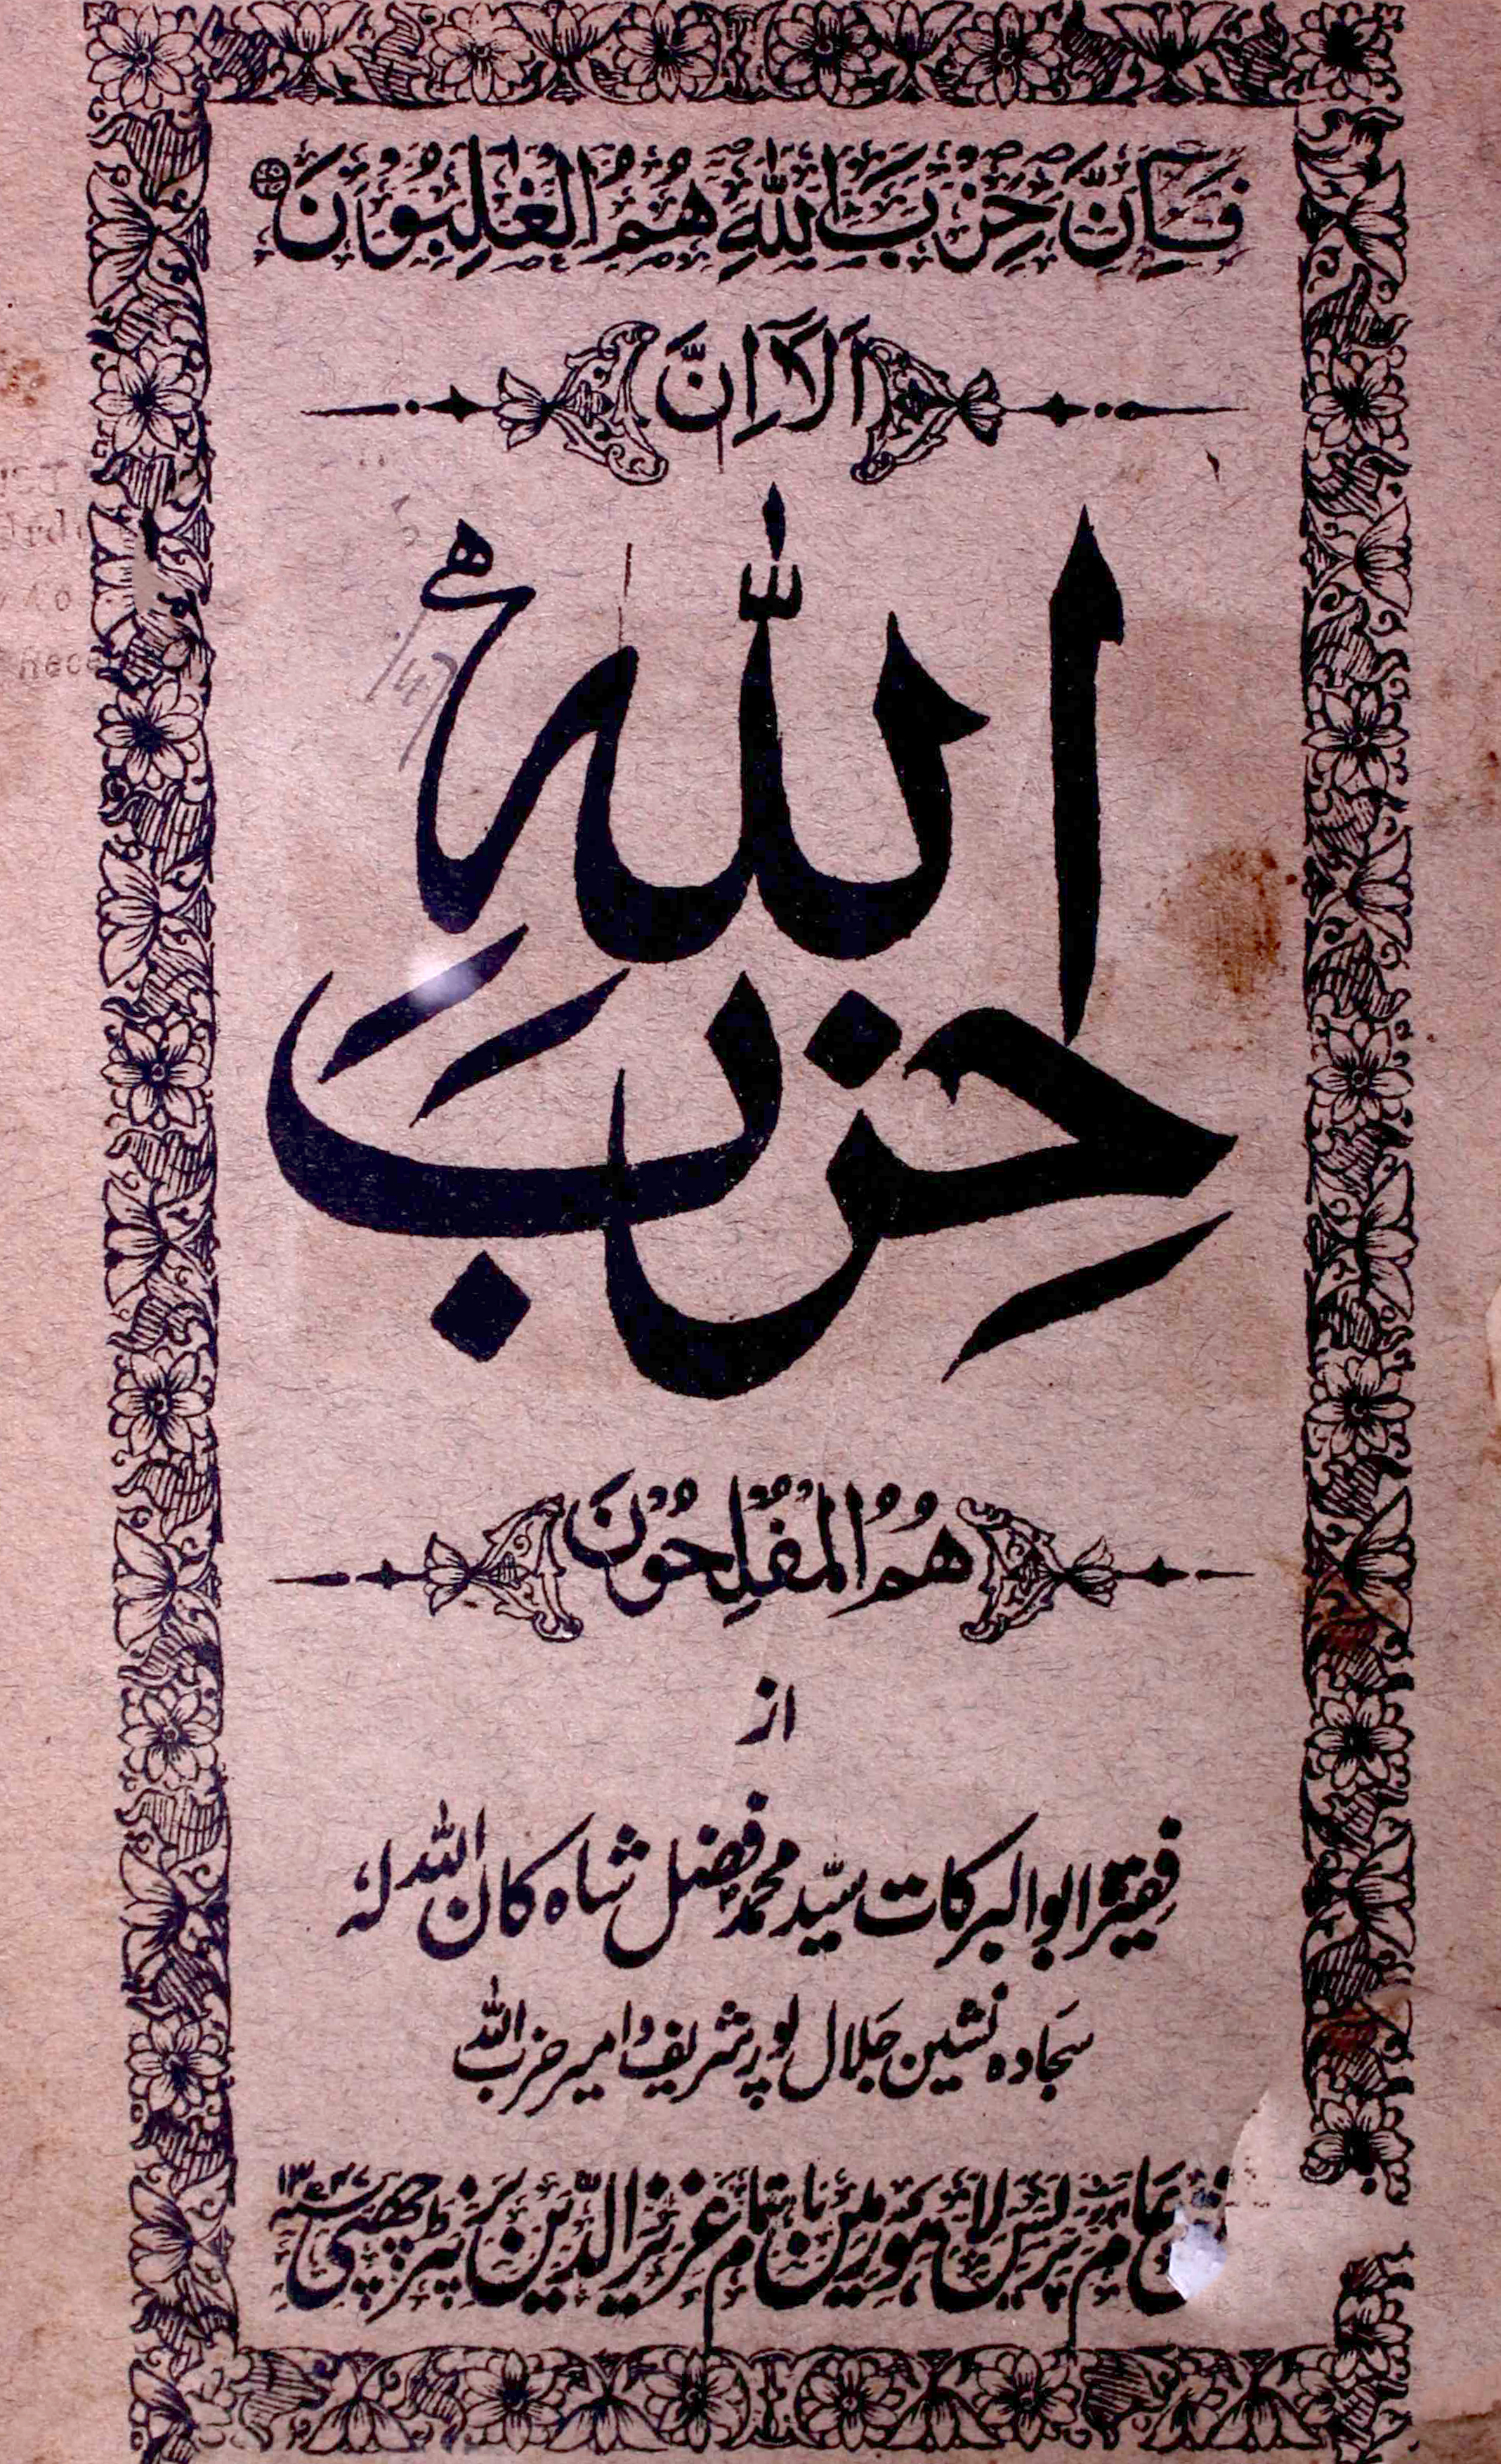 فَاِنَّ حِزْبَ اللّٰهِ هُمُ الْغٰلِبُوْنَ
اَلَآ اِنَّ
حِزْبَ اللّٰهِ
هُمُ الْمُفْلِحُوْنَ
از
فقیر ابوالبرکات سیّد محمد فضل شاہ کان اللہ لہٗ
سجادہ نشین جلال پور شریف و امیر حزب اللہ
عام پریس لاہور میں باہتمام عزیز الدین پرنٹر چھپی